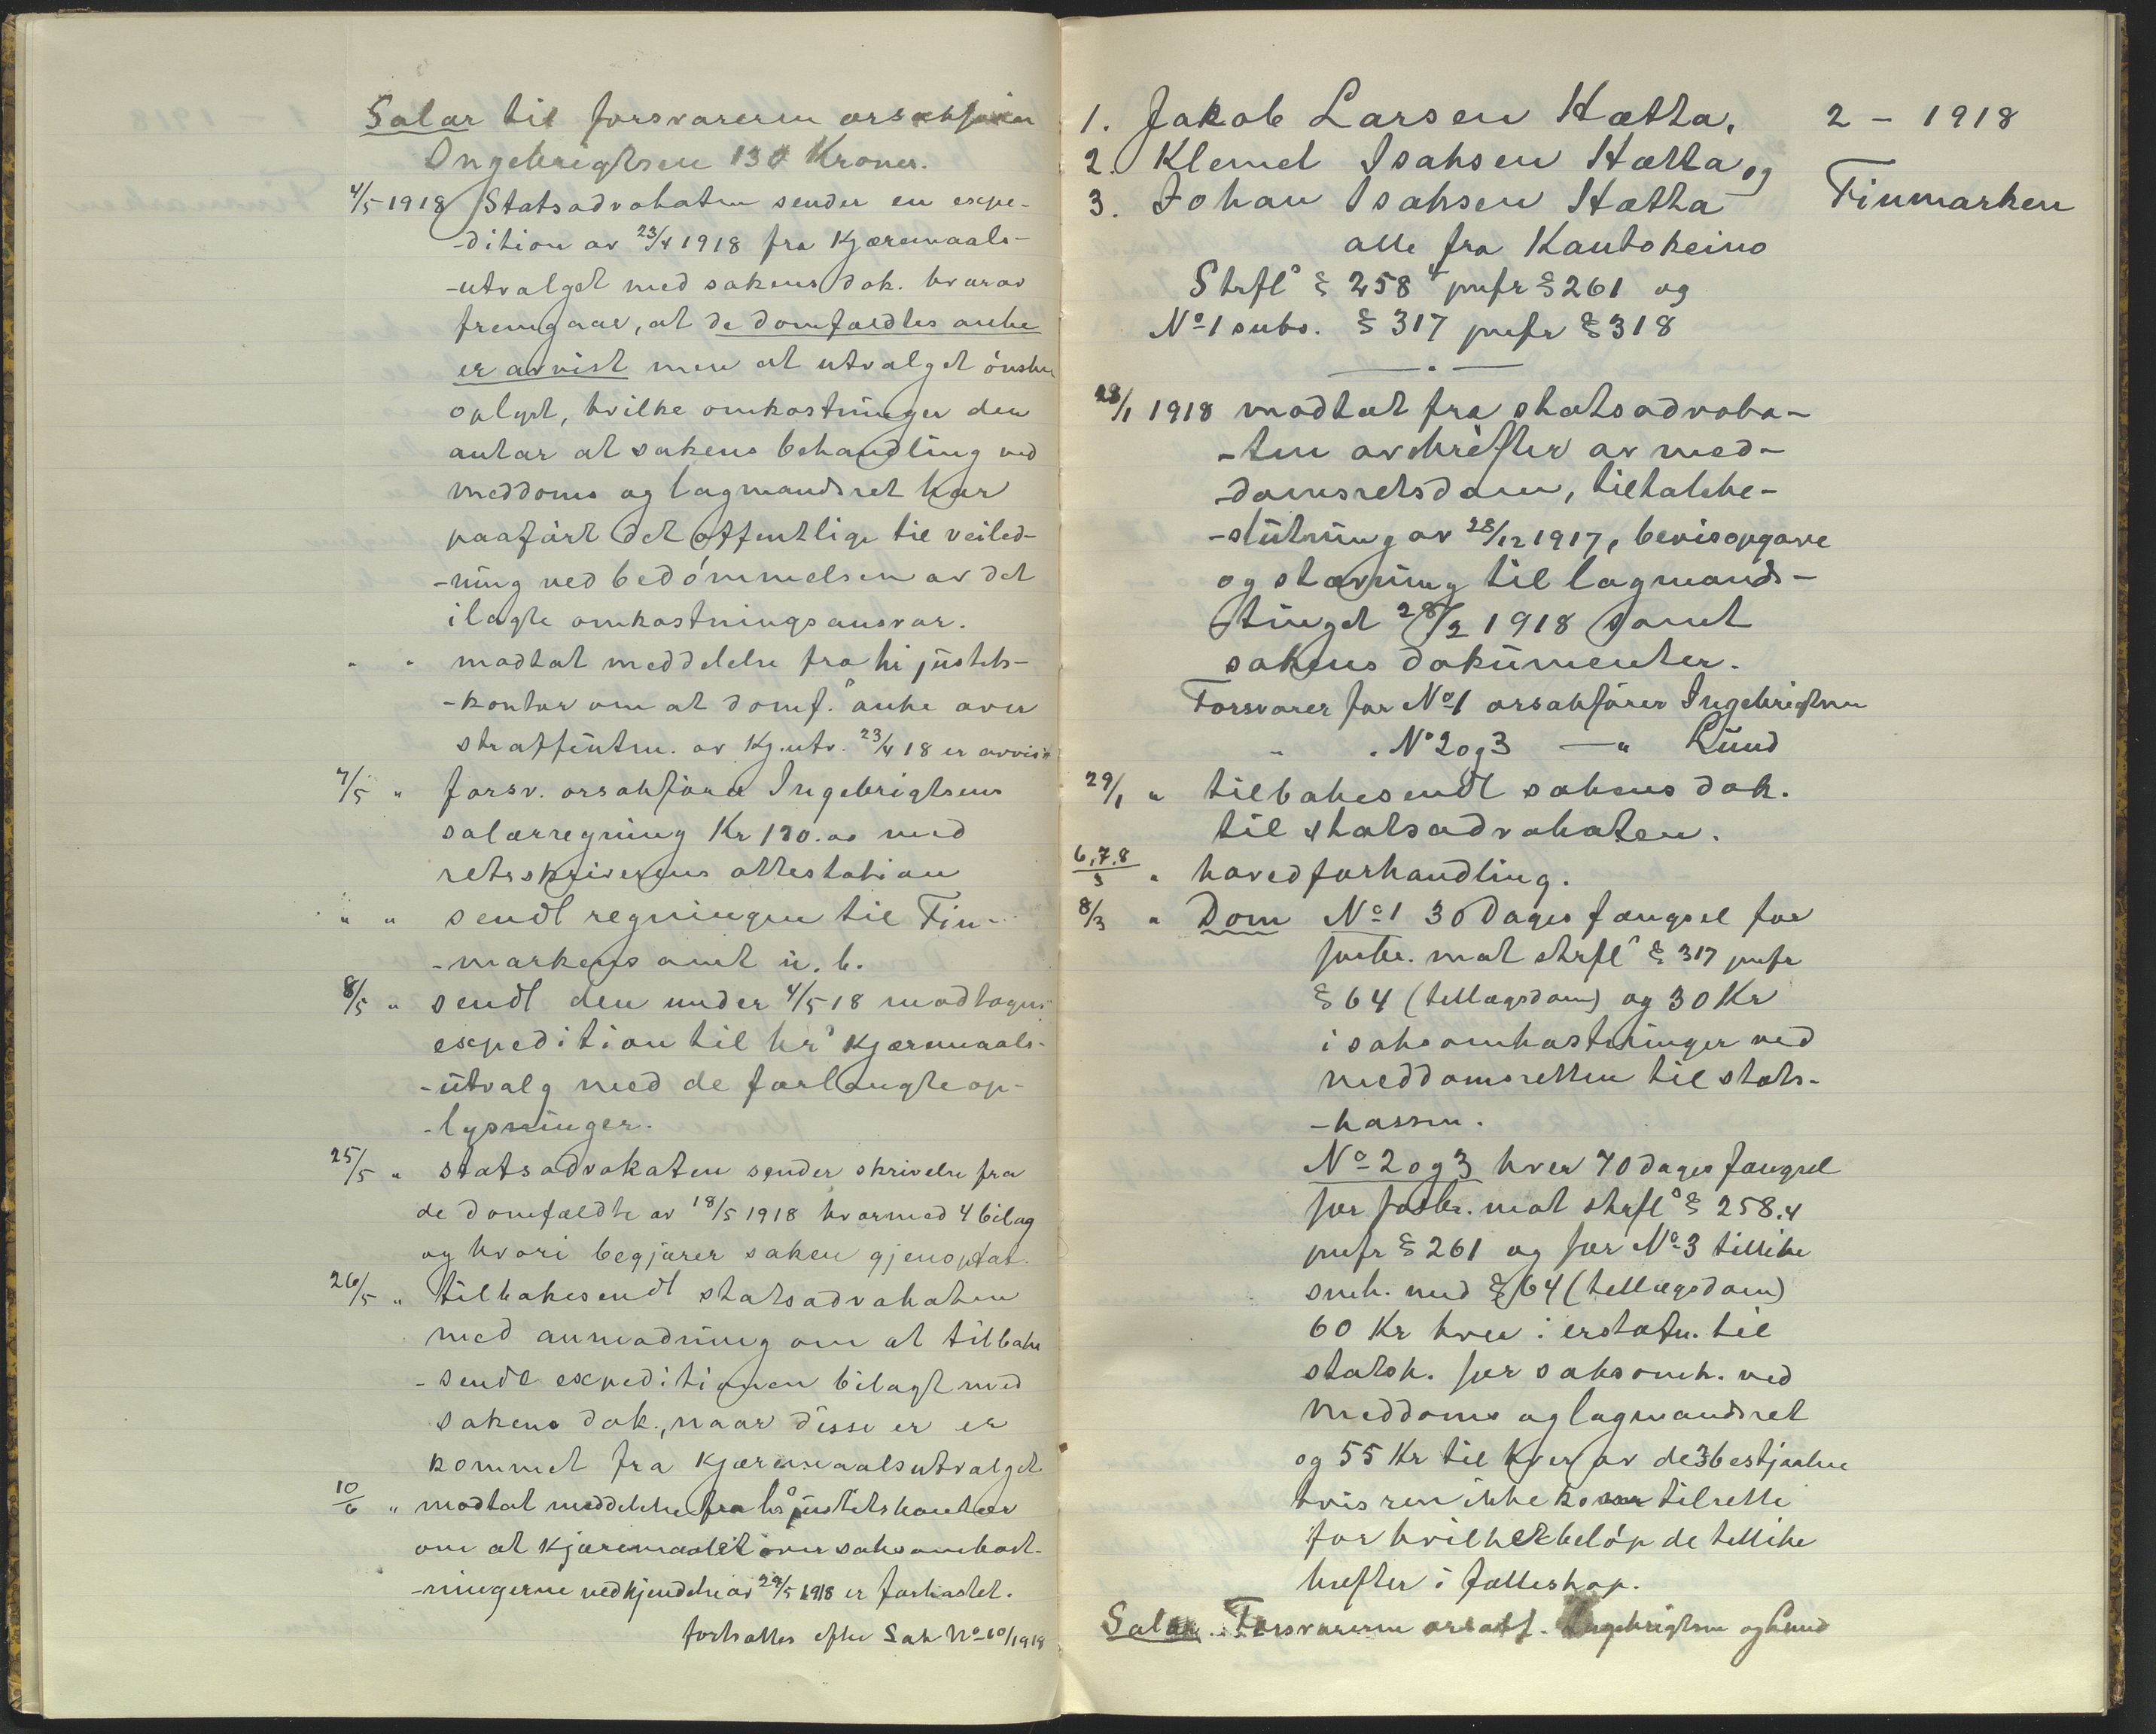 Salær til forsvareren orsakfører
Ingebrigtsen 130 Kroner.
4/5 1918 Statsadvokaten sender en expe-
-dition av 23/4 1918 fra Kjæremaals-
-utvalget med sakens dok. hvorav
fremgaar, at de domfældtes anke
er avvist men at utvalget ønsker
oplyst, hvilke omkostninger den
antar at sakens behandling ved
meddoms og lagmandsret har
paaført det offentlige til veiled-
-ning ved bedømmelsen av det
ilagte omkostningsansvar.
" " modtat meddelelse fra hr justits-
-kontor om at domf.s anke over
straffutm. av Kj.utv. 23/4 18 er avvist
7/5 " forsv. orsakfører Ingebrigtsens
salærregning Kr 130.00 med
retsskriverens attestation
" " sendt regningen til Fin-
-markens amt u. b.
8/5 " sendt den under 4/5 18 modtagne
expedition til hrs Kjæremaals-
-utvalg med de forlangte op-
-lysninger.
25/5 " statsadvokaten sender skrivelse fra
de domfældte av 18/5 1918 hvormed 4 bilag
og hvori begjærer saken gjenoptat.
26/5 " tilbakesendt statsadvokaten
med anmodning om at tilbake
-sende expeditionen bilagt med
sakens dok., naar disse er er
kommet fra Kjæremaalsutvalget
10/6 " modtat meddelelse fra hrs justitskontor
om at Kjæremaalet over saksomkost-
-ningerne ved kjendelse av 29/5 1918 er forkastet.
fortsattes efter Sak No 10/1918
1. Jakob Larsen Hætta, 2 - 1918
2. Klemet Isaksen Hætta og
3. Johan Isaksen Hætta Finmarken
alle fra Kautokeino
Strfls § 258 4 jmfr § 261 og
No 1 subs. § 317 jmfr § 318
28/1 1918 modtat fra statsadvoka-
-ten avskrifter av med-
-domsretsdom, tiltalebe-
-slutning av 28/12 1917, bevisopgave
og stævning til lagmands-
tinget 28/2 1918 samt
sakens dokumenter.
Forsvarer for No 1 orsakfører Ingebrigtsen
" " No 2 og 3 — " Lund
29/1 " tilbakesendt sakens dok.
til statsadvokaten.
6,7,8/3 " hovedforhandling.
8/3 " Dom No 1 30 dages fængsel for
forbr. mot strfls § 317 jmfr
§ 64 (tillægsdom) og 30 Kr
i saksomkostninger ved
meddomsretten til stats-
-kassen.
No 2 og 3 hver 70 dages fængsel
for forbr. mot strfls § 258.4
jmfr § 261 og for No 3 tillike
smh. med § 64 (tillægsdom)
60 Kr hver i erstatn. til
statsk. for saksomk. ved
meddoms og lagmandsret
og 55 Kr til hver av de 3 bestjaalne
hvis ren ikke kommer tilrette
for hvilket beløp de tillike
hefter i fælleskap.
Salær. Forsvareren orsakf. Ingebrigtsen og Lund